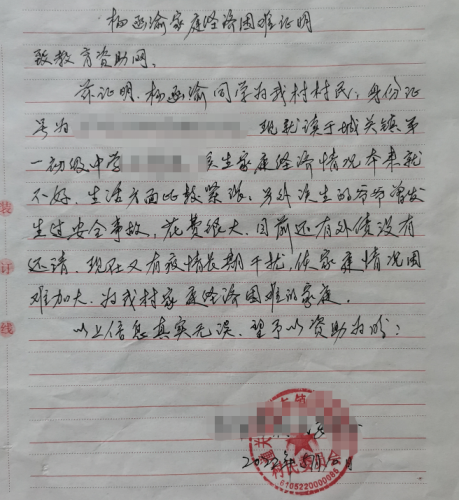 杨函渝家庭经济困难证明
致教育资助网:
兹证明,杨函渝同学为我村村民,身份证
号为 现就读于城关镇第
一初级中学 该生家庭经济情况本来就
不好,生活方面比较紧张,另外该生的爷爷曾发
生过安全事故,花费很大,目前还有外债没有
还清,现在又有疫情长期干扰,使家庭情况困
难加大,为我村家庭经济困难的家庭。
以上信息真实无误,望予以资助为盼!
村民委员会
6105220000086
2022年
装
订
线